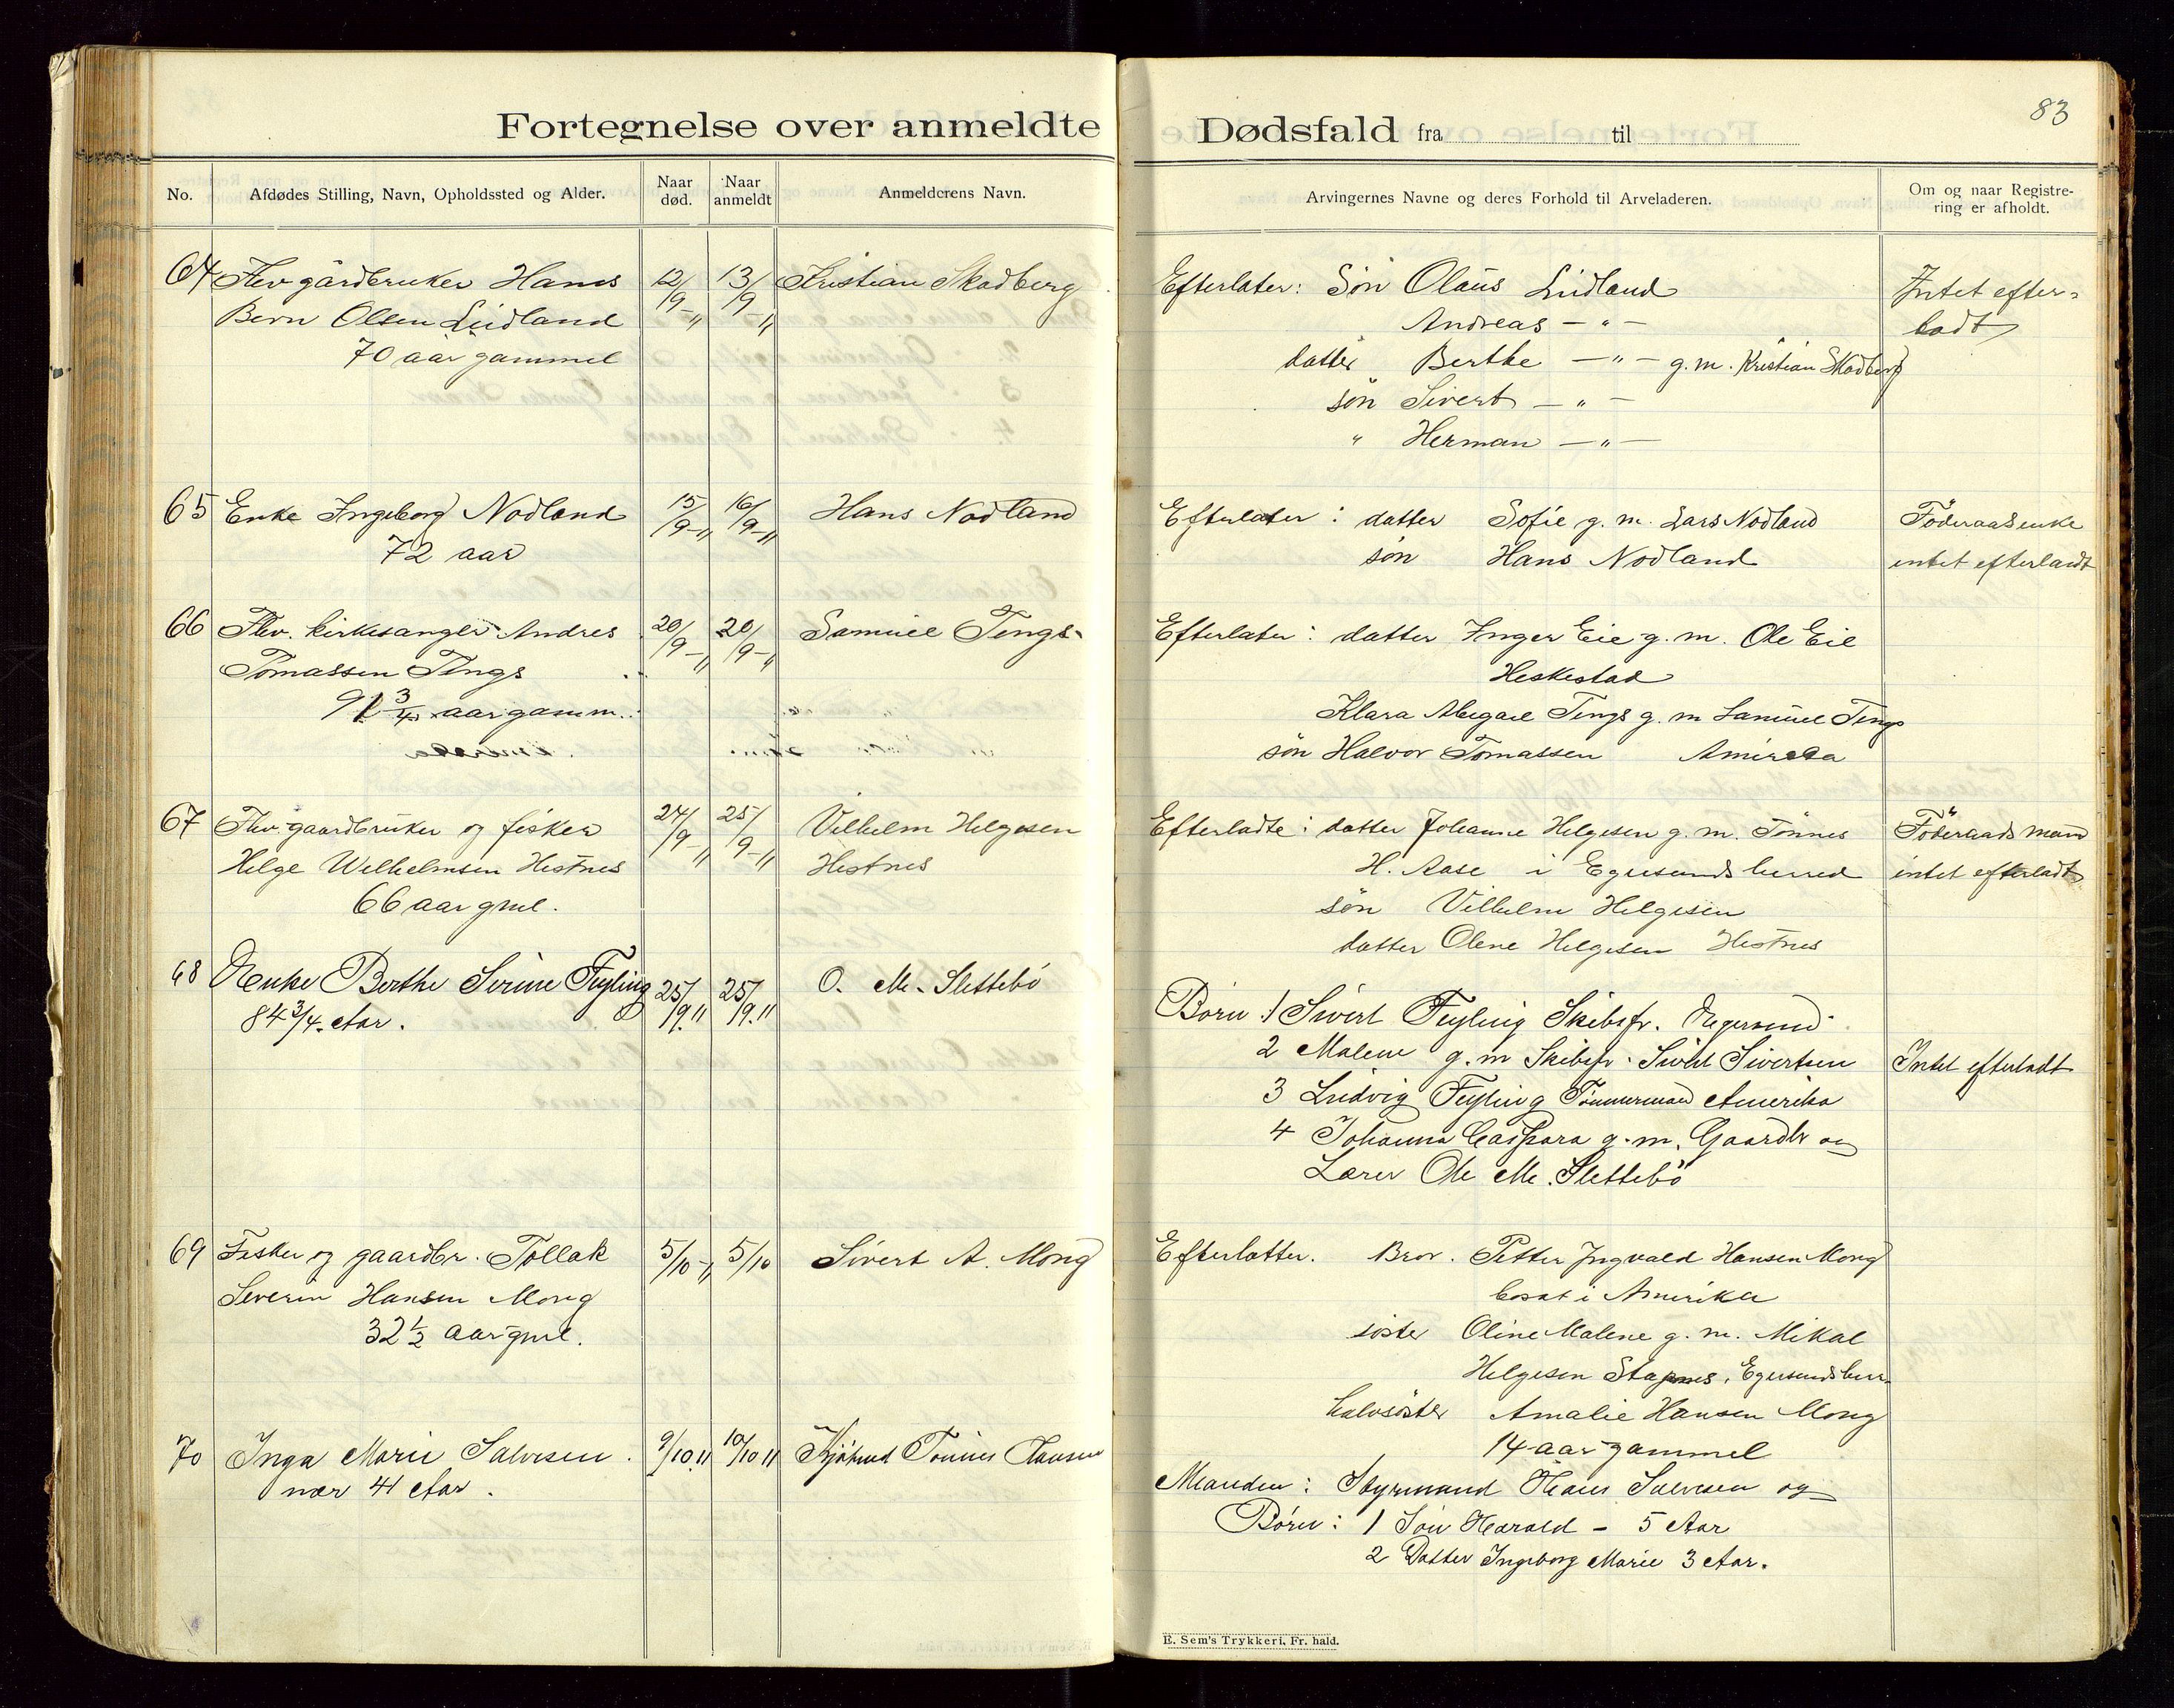 83
Fortegnelse over anmeldte Dødsfald fra til
No.
Afdødes Stilling, Navn, Opholdssted og Alder.
Naar død.
Naar anmeldt
Anmelderens Navn.
Arvingernes Navne og deres Forhold til Arveladeren.
Om og naar Registre-
ring er afholdt.
64 Fhv gårdbruker Hans 12/9-" 13/9-" Kristian Skadberg Efterlater: Søn Olaus Lidland Intet efter-
Bern Olsen Lidland Andreas - " - ladt
70 aar gammel datter Berthe - " - g.m. Kristian Skadberg
søn Sivert - " -
" Herman - " -
65 Enke Ingeborg Nodland 15/9-" 16/9-" Hans Nodland Efterlater: datter Sofie g. m. Lars Nodland Föderaadsenke
72 aar søn Hans Nodland intet efterladt
66 Fhv. kirkesanger Andres 20/9-" 20/9-" Samuel Tengs Efterlater: datter Inger Eie g. m. Ole Eie
Tomassen Tengs Heskestad
91 3/4 aar gamm. Klara Abigael Tengs g. m Samuel Tengs
søn Halvor Tomassen Amireka
67 Fhv. gaardbruker og fisker 24/9-" 25/9-" Vilhelm Helgesen Efterladte: datter Johanne Helgesen g. m. Tønnes Föderaadsmand
Helge Wilhelmsen Hestnes Hestnes H. Aase i Egersunds herred intet efterladt
66 aar gml. søn Vilhelm Helgesen
datter Olene Helgesen Hestnes
68 Enke Berthe Serine Fuyling 25/9." 25/9." O. M. Slettebø
84 3/4. Aar. Børn 1 Sivert Fuyling Skibsfr. Egersund
2 Malene g. m Skibsfr. Sivert Sivertsen Intet efterladt
3 Ludvig Fuyling Tømmermand Amerika
4 Johanna Caspara g. m. Gaardbr og
Lærer Ole M. Slettebø
69 Fisker og gaardbr. Tollak 5/10-" 5/10 Sivert A. Mong Efterlatter. Bror. Petter Ingvald Hansen Mong
Severin Hansen Mong bosat i Amerika
32 1/2 aar gml. søster Oline Malene g. m. Mikal
Helgesen Stapnes, Egersunds herr.
halvsøster Amalie Hansen Mong
14 aar gammel
70 Inga Marie Salvesen. 9/10." 10/10 " Tønnes Hansen
nær 41 Aar. Manden: Styrmand Hans Salvesen og
Børn: 1 Søn Harald - 5 Aar
2 Datter Ingeborg Marie 3 Aar.
E. Sem's Trykkeri, Fr. hald.